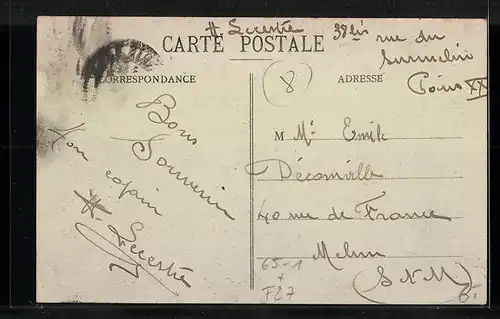 H. Lecestre 38 bis rue du
Surmelin
Paris XX
CARTE POSTALE
CORRESPONDANCE
ADRESSE
8
Bons
Souvenirs
Ton copain
H. Lecestre
M Mr Emile
Décomville
40 rue de France
Melun
(S N M)
65-1
+
F27